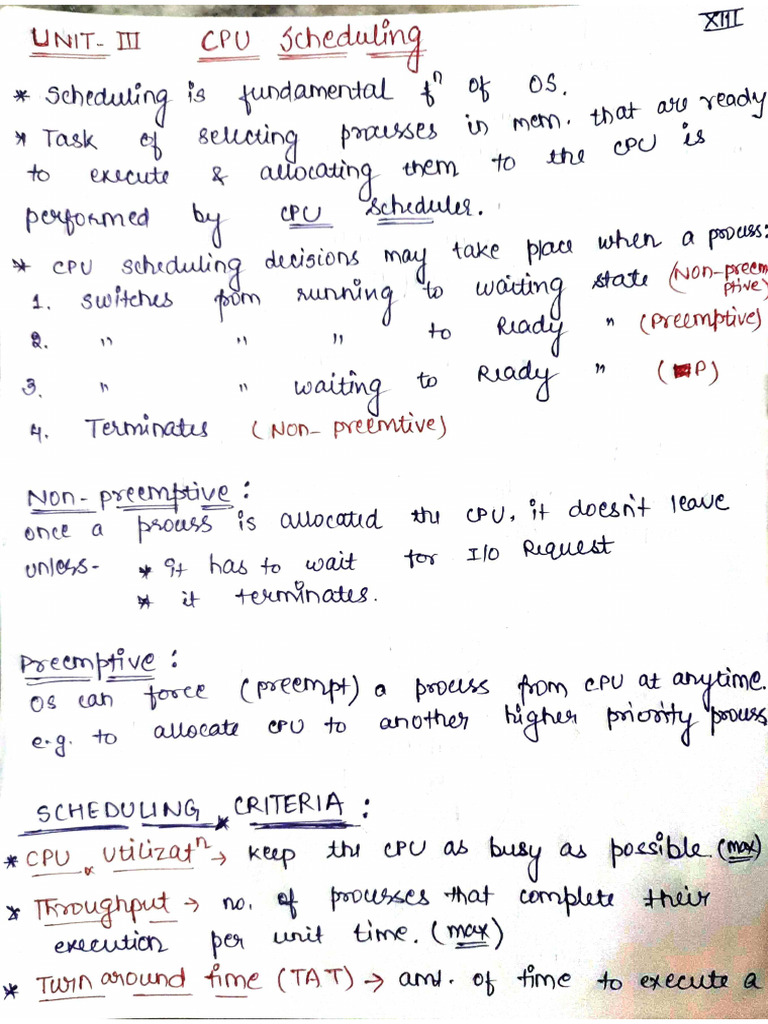 XIII
UNIT-III CPU Scheduling
* Scheduling is fundamental fⁿ of OS.
* Task of selecting processes in mem. that are ready
to execute & allocating them to the CPU is
performed by CPU Scheduler.
* CPU scheduling decisions may take place when a process:
1. Switches from running to waiting state (Non-preem
ptive)
2. " " " to Ready " (Preemptive)
3. " " waiting to Ready " (P)
4. Terminates (Non-preemtive)
Non-preemptive:
once a process is allocated the CPU, it doesn't leave
unless- * it has to wait for I/O Request
* it terminates.
Preemptive:
OS can force (preempt) a process from CPU at anytime.
e.g. to allocate CPU to another higher priority process
SCHEDULING CRITERIA:
* CPU Utilizatⁿ → keep the CPU as busy as possible.(max)
* Throughput → no. of processes that complete their
execution per unit time. (max)
* Turn around time (TAT) → amt. of time to execute a